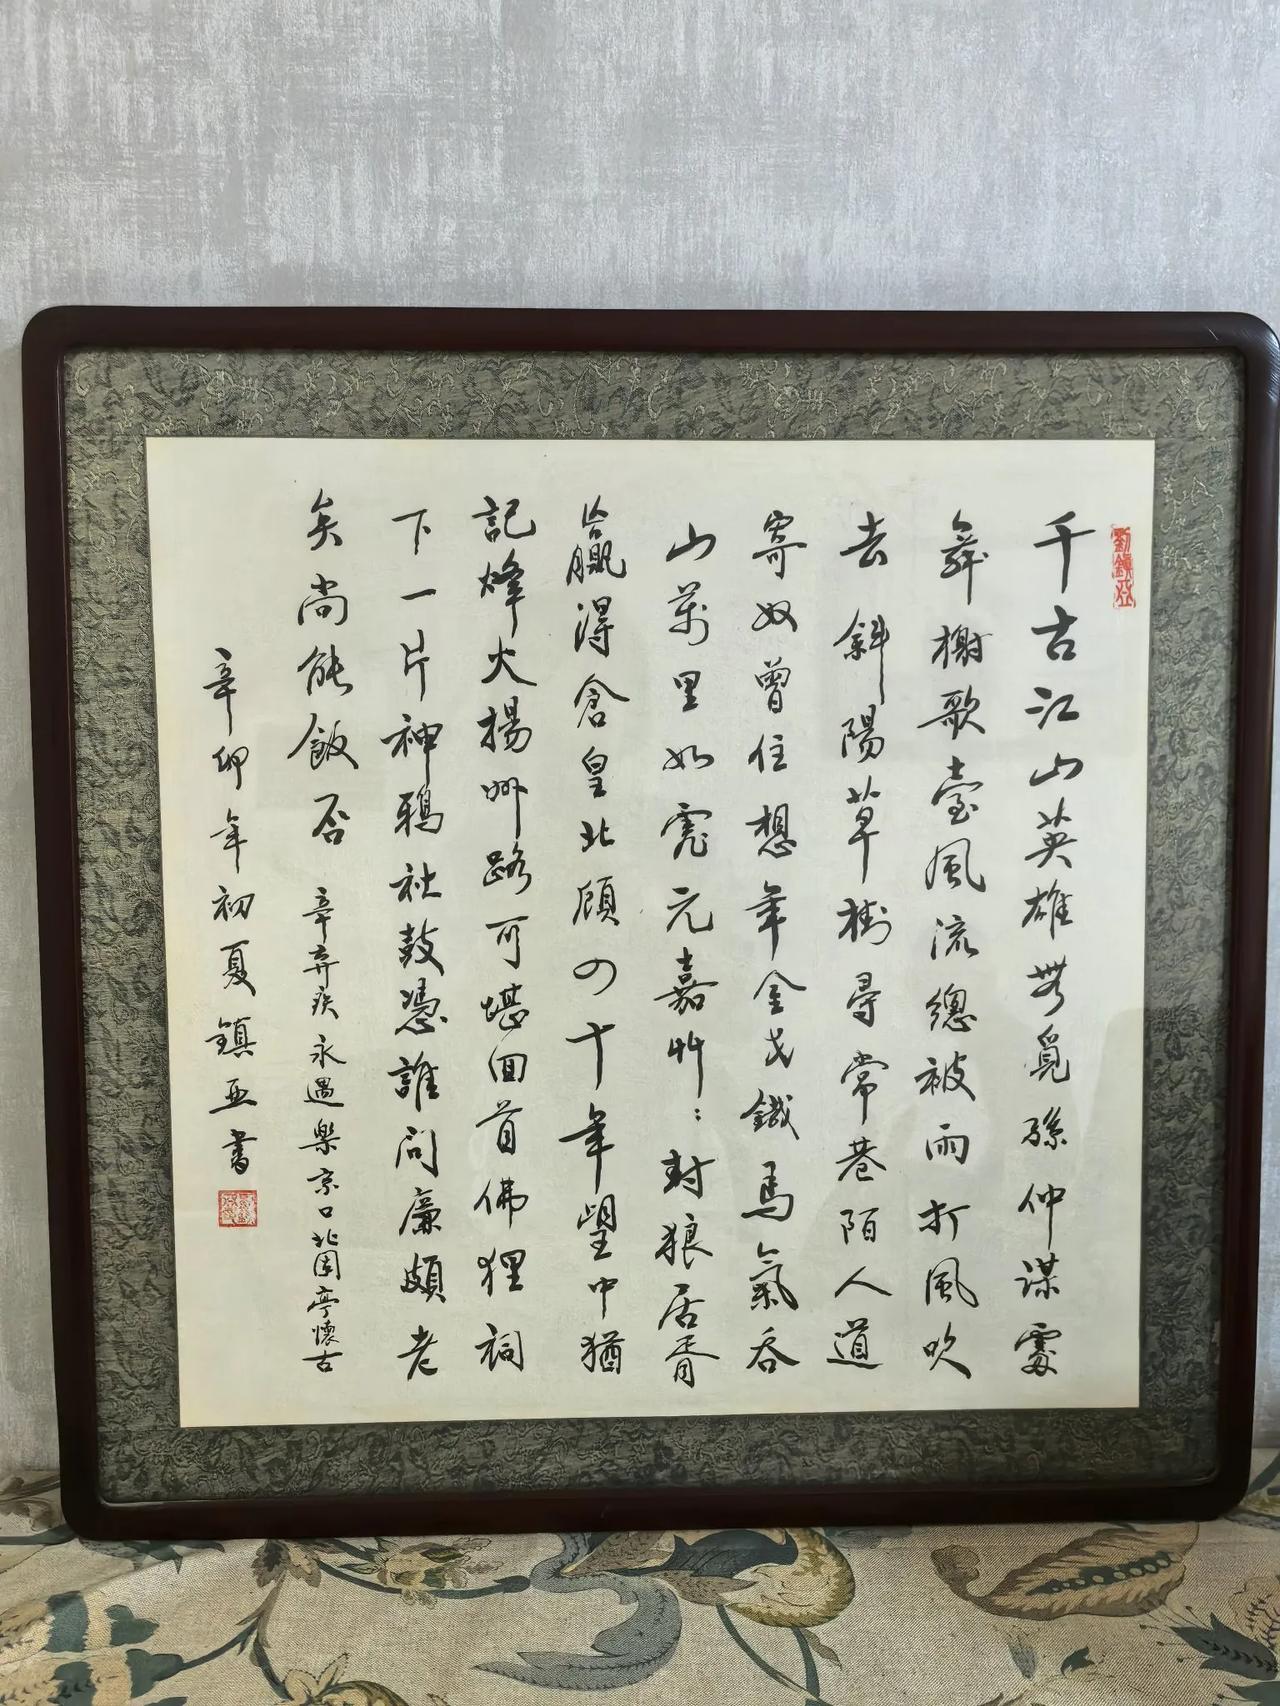 劉鎮亞
千古江山英雄無覓孫仲謀處
舞榭歌臺風流總被雨打風吹
去斜陽草樹尋常巷陌人道
寄奴曾住想年金戈鐵馬氣吞
山萬里如虎元嘉艸：封狼居胥
贏得倉皇北顧四十年望中猶
記烽火揚州路可堪回首佛狸祠
下一片神鴉社鼓憑誰問廉頗老
矣尚能飯否 辛弃疾永遇樂京口北固亭懷古
辛卯年初夏鎮亞書